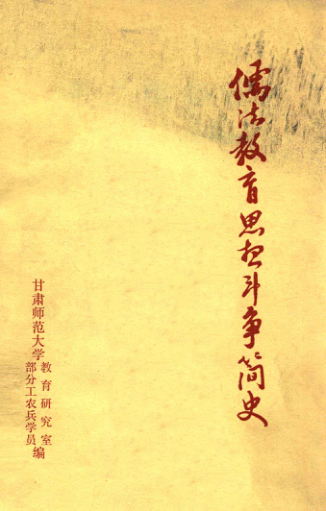 儒法教育思想斗争简史
甘肃师范大学教育研究室
部分工农兵学员编